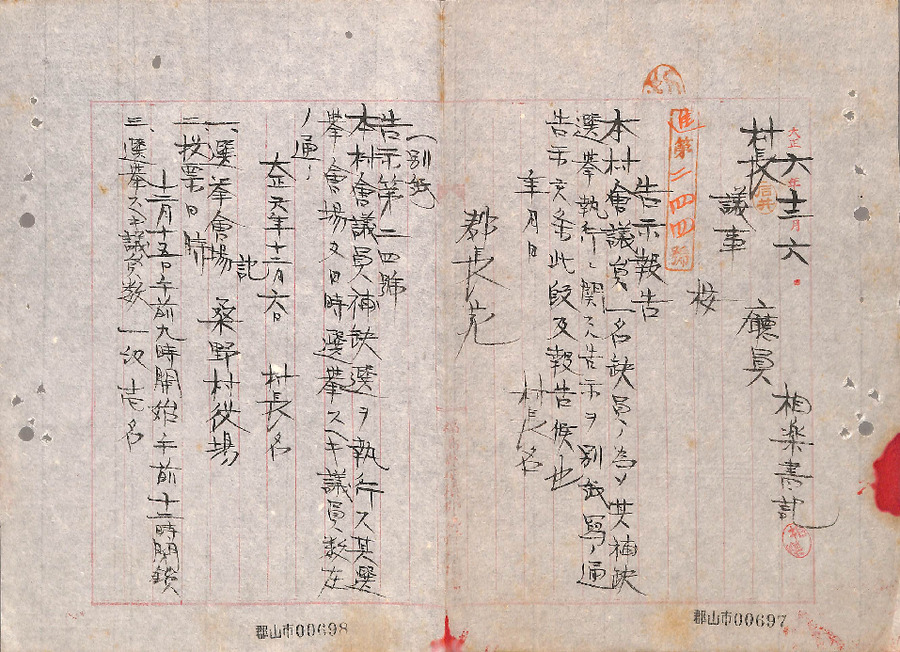 大正六年十二月六
村長
議事
廳員
相楽書記
進第二四四號
按
告示報告
本村會議員一名缺員ノ為メ其補缺
選挙執行ニ関スル告示ヲ別紙寫ノ通
告示致候条此段及報告候也
年月日
村長名
郡長宛
(別紙)
告示第二四號
本村會議員補缺選ヲ執行ス其選
挙會場及日時選挙スヘキ議員数左
ノ通
大正六年十二月六日
村長名
記
一、選挙會場 桑野村役場
二、投票日時
十二月十五日午前九時開始午前十二時閉鎖
三、選挙スヘキ議員数 一級 壱名
郡山市00697
郡山市00698